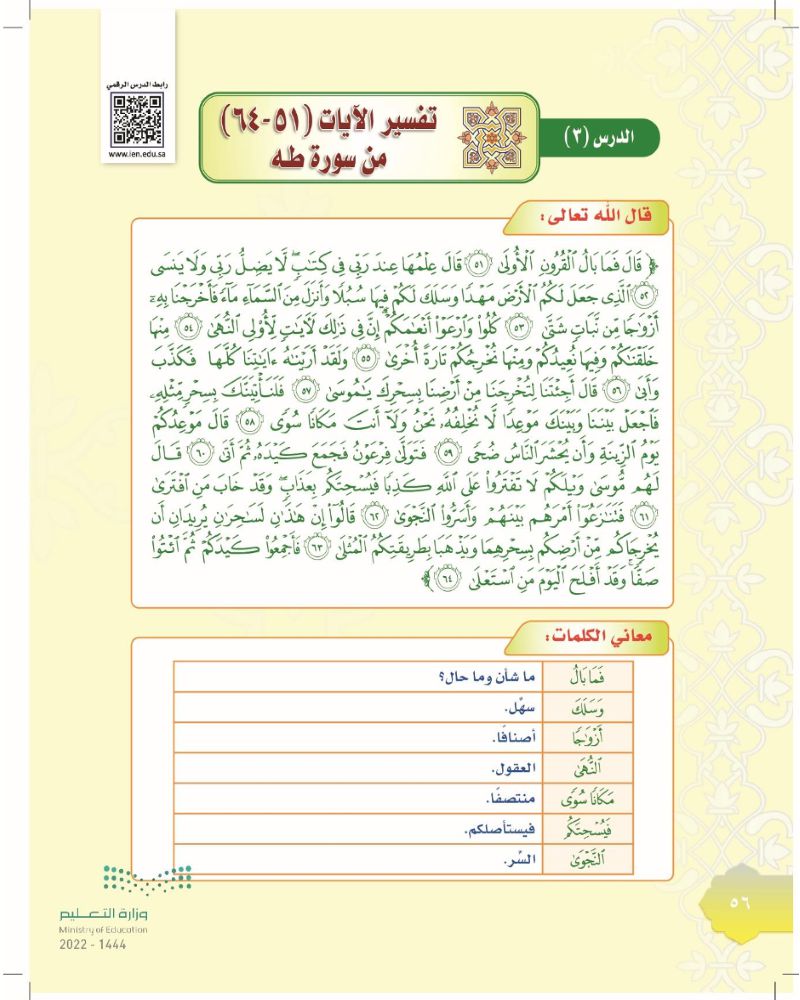 رابط الدرس الرقمي
www.ien.edu.sa
الدرس (٣)
تفسير الآيات (٥١-٦٤)
من سورة طه
قال الله تعالى:
﴿ قَالَ فَمَا بَالُ الْقُرُونِ الْأُولَىٰ ٥١ قَالَ عِلْمُهَا عِندَ رَبِّي فِي كِتَابٍ لَّا يَضِلُّ رَبِّي وَلَا يَنسَى
٥٢ الَّذِي جَعَلَ لَكُمُ الْأَرْضَ مَهْدًا وَسَلَكَ لَكُمْ فِيهَا سُبُلًا وَأَنزَلَ مِنَ السَّمَاءِ مَاءً فَأَخْرَجْنَا بِهِ
أَزْوَاجًا مِّن نَّبَاتٍ شَتَّىٰ ٥٣ كُلُوا وَارْعَوْا أَنْعَامَكُمْ إِنَّ فِي ذَٰلِكَ لَآيَاتٍ لِّأُولِي النُّهَىٰ ٥٤ مِنْهَا
خَلَقْنَاكُمْ وَفِيهَا نُعِيدُكُمْ وَمِنْهَا نُخْرِجُكُمْ تَارَةً أُخْرَىٰ ٥٥ وَلَقَدْ أَرَيْنَاهُ ءَايَاتِنَا كُلَّهَا فَكَذَّبَ
وَأَبَىٰ ٥٦ قَالَ أَجِئْتَنَا لِتُخْرِجَنَا مِنْ أَرْضِنَا بِسِحْرِكَ يَا مُوسَىٰ ٥٧ فَلَنَأْتِيَنَّكَ بِسِحْرٍ مِّثْلِهِ
فَاجْعَلْ بَيْنَنَا وَبَيْنَكَ مَوْعِدًا لَّا نُخْلِفُهُ نَحْنُ وَلَا أَنتَ مَكَانًا سُوًى ٥٨ قَالَ مَوْعِدُكُمْ
يَوْمُ الزِّينَةِ وَأَن يُحْشَرَ النَّاسُ ضُحًى ٥٩ فَتَوَلَّىٰ فِرْعَوْنُ فَجَمَعَ كَيْدَهُ ثُمَّ أَتَىٰ ٦٠ قَالَ
لَهُم مُّوسَىٰ وَيْلَكُمْ لَا تَفْتَرُوا عَلَى اللَّهِ كَذِبًا فَيُسْحِتَكُم بِعَذَابٍ وَقَدْ خَابَ مَنِ افْتَرَىٰ
٦١ فَتَنَازَعُوا أَمْرَهُم بَيْنَهُمْ وَأَسَرُّوا النَّجْوَىٰ ٦٢ قَالُوا إِنْ هَٰذَانِ لَسَاحِرَانِ يُرِيدَانِ أَن
يُخْرِجَاكُم مِّنْ أَرْضِكُم بِسِحْرِهِمَا وَيَذْهَبَا بِطَرِيقَتِكُمُ الْمُثْلَىٰ ٦٣ فَأَجْمِعُوا كَيْدَكُمْ ثُمَّ ائْتُوا
صَفًّا وَقَدْ أَفْلَحَ الْيَوْمَ مَنِ اسْتَعْلَىٰ ٦٤ ﴾
معاني الكلمات:
فَمَا بَالُ ما شأن وما حال؟
وَسَلَكَ سهَّل.
أَزْوَاجًا أصنافًا.
النُّهَىٰ العقول.
مَكَانًا سُوًى منتصفًا.
فَيُسْحِتَكُم فيستأصلكم.
النَّجْوَىٰ السِّر.
٥٦
وزارة التعليم
Ministry of Education
2022 - 1444